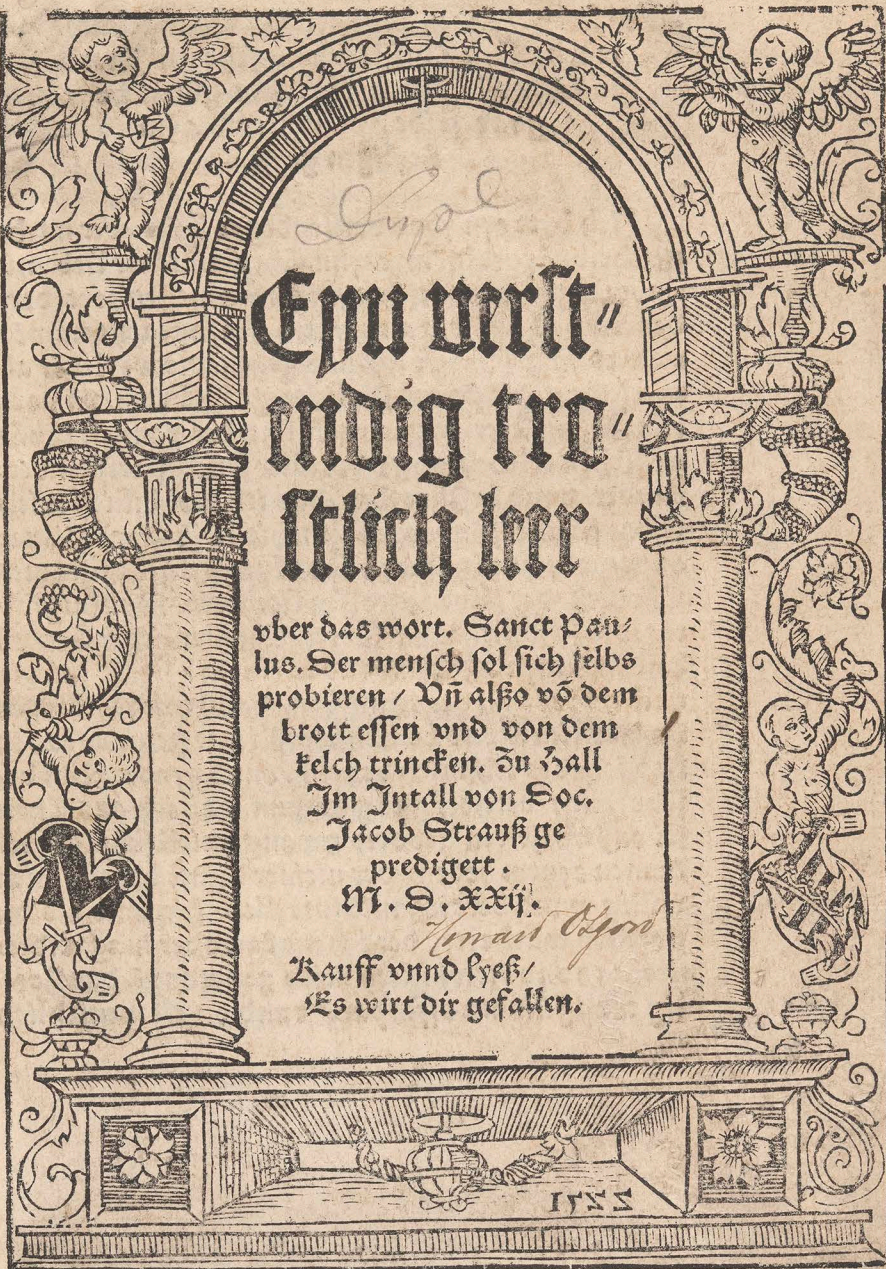 Dupl
Eyn verst⸗
endig tro⸗
stlich leer
vber das wort. Sanct Pau⸗
lus. Der mensch sol sich selbs
probieren / Vñ alßo võ dem
brott essen vnd von dem
kelch trincken. Zu Hall
Im Intall von Doc.
Jacob Strauß ge
predigett.
M. D. XXij.
Kauff vnnd lyeß/
Es wirt dir gefallen.
1522